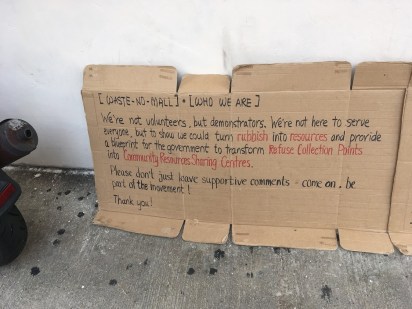 [WASTE-NO-MALL] • [WHO WE ARE]
We're not volunteers, but demonstrators. We're not here to serve
everyone, but to show we could turn rubbish into resources and provide
a blueprint for the government to transform Refuse Collection Points
into Community Resources Sharing Centres.
Please don't just leave supportive comments - come on, be
part of the movement!
Thank you!